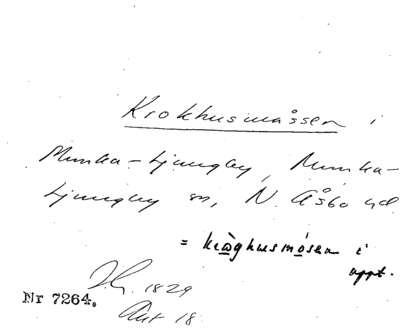 Krokhusmåssen i
Munka-Ljungby, Munka-
Ljungby sn, N. Åsbo hd
= kråghusmosen i
uppt.
1829
Nr 7264. Akt 18